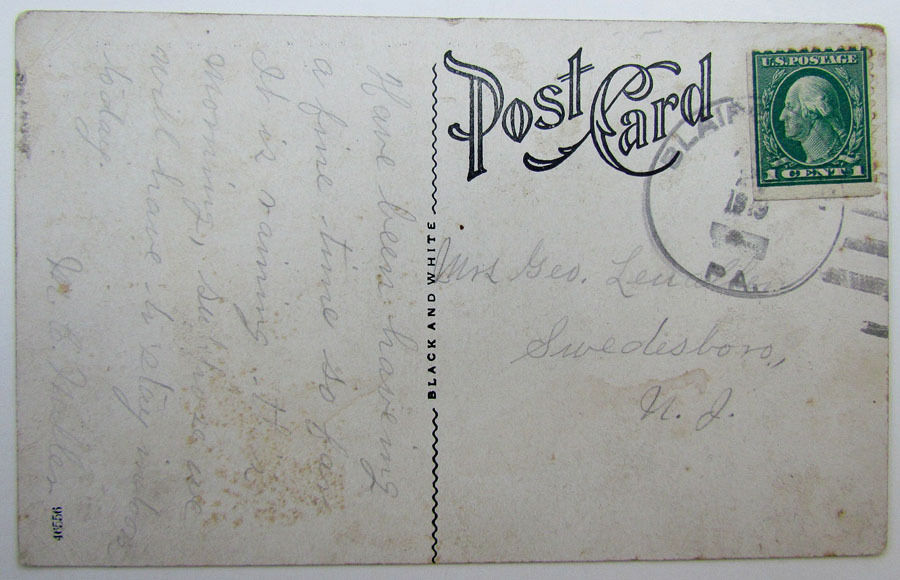 Have been having
a fine time so far
It is raining this
morning, suppose we
will have to stay in
today.
46556
BLACK AND WHITE
Post Card
U.S. POSTAGE
1 CENT 1
PA.
Mrs Geo.
Swedesboro,
N. J.